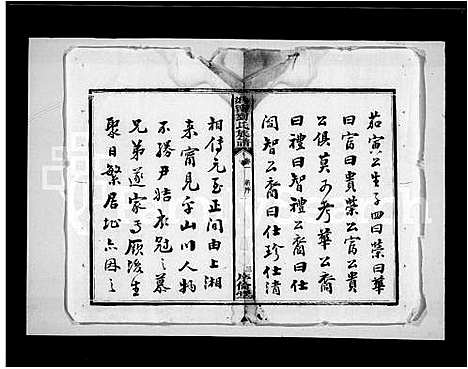 茹寅公生子四曰榮曰華
曰富曰貴榮公富公貴
公俱莫可考華公裔
曰禮曰智禮公裔曰仕
閏智公裔曰仕珍仕清
氏族譜
相傳元至正間由上湘
來甯見乎山川人物
不勝尹姞衣冠之慕
兄弟遂家焉厥後生
聚日繁居址亦因之